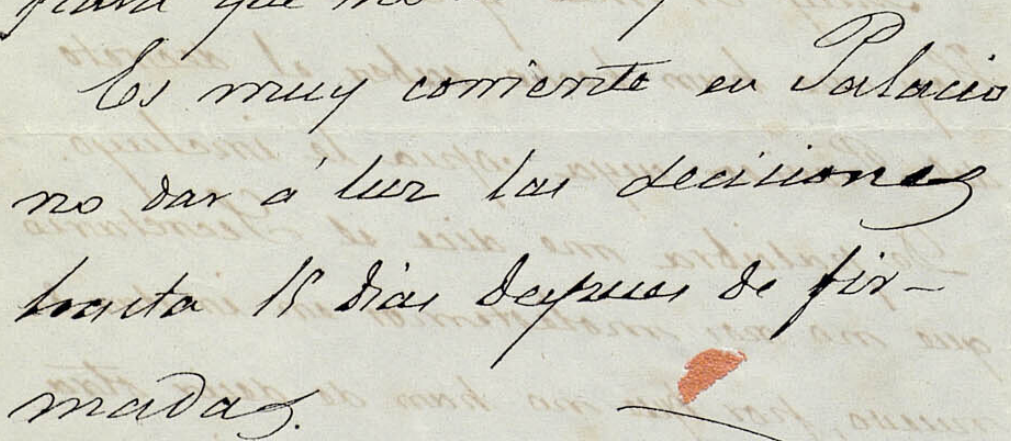 para que no
Es muy corriente en Palacio
no dar á luz las decisiones
hasta 15 dias despues de fir-
madas.